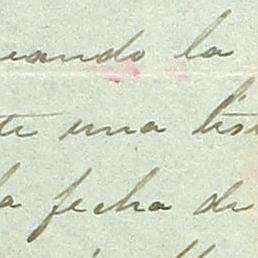 ando la
te una lis
la fecha de